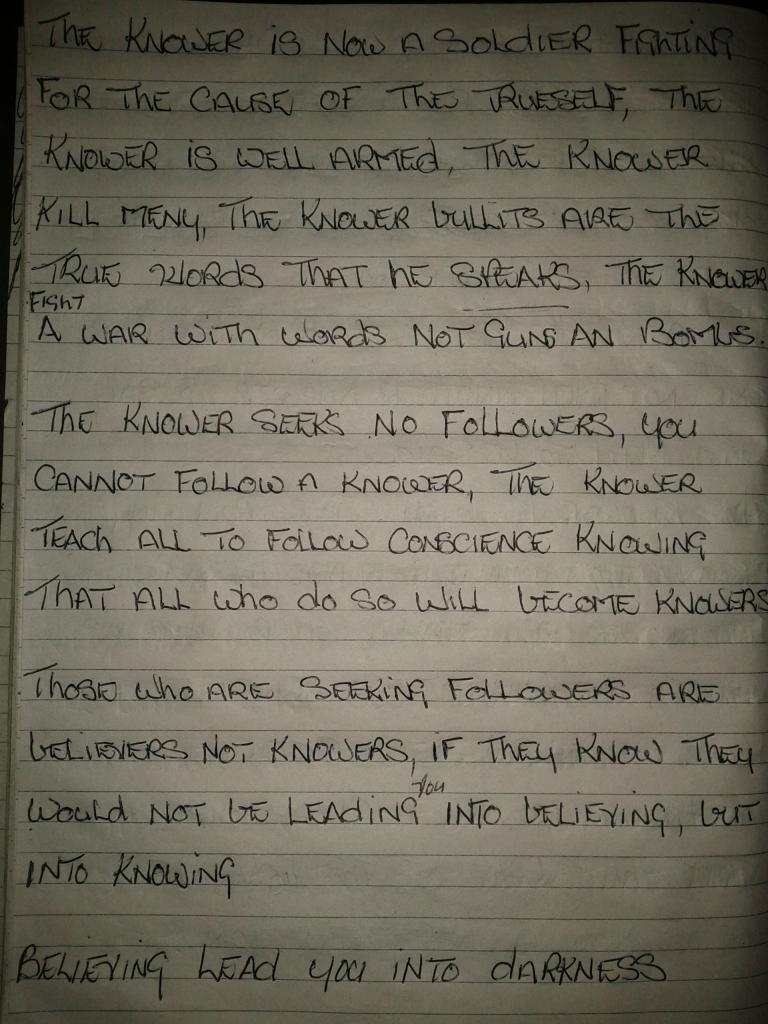 THE KNOWER IS NOW A SOLDIER FIGHTING
FOR THE CAUSE OF THE TRUESELF, THE
KNOWER IS WELL ARMED, THE KNOWER
KILL MENY, THE KNOWER BULLITS ARE THE
TRUE WORDS THAT HE SPEAKS, THE KNOWER
FIGHT
A WAR WITH WORDS NOT GUNS AN BOMBS.
THE KNOWER SEEKS NO FOLLOWERS, YOU
CANNOT FOLLOW A KNOWER, THE KNOWER
TEACH ALL TO FOLLOW CONSCIENCE KNOWING
THAT ALL WHO DO SO WILL BECOME KNOWERS
THOSE WHO ARE SEEKING FOLLOWERS ARE
BELIEVERS NOT KNOWERS, IF THEY KNOW THEY
you
WOULD NOT BE LEADING INTO BELIEVING, BUT
INTO KNOWING
BELIEVING LEAD YOU INTO DARKNESS